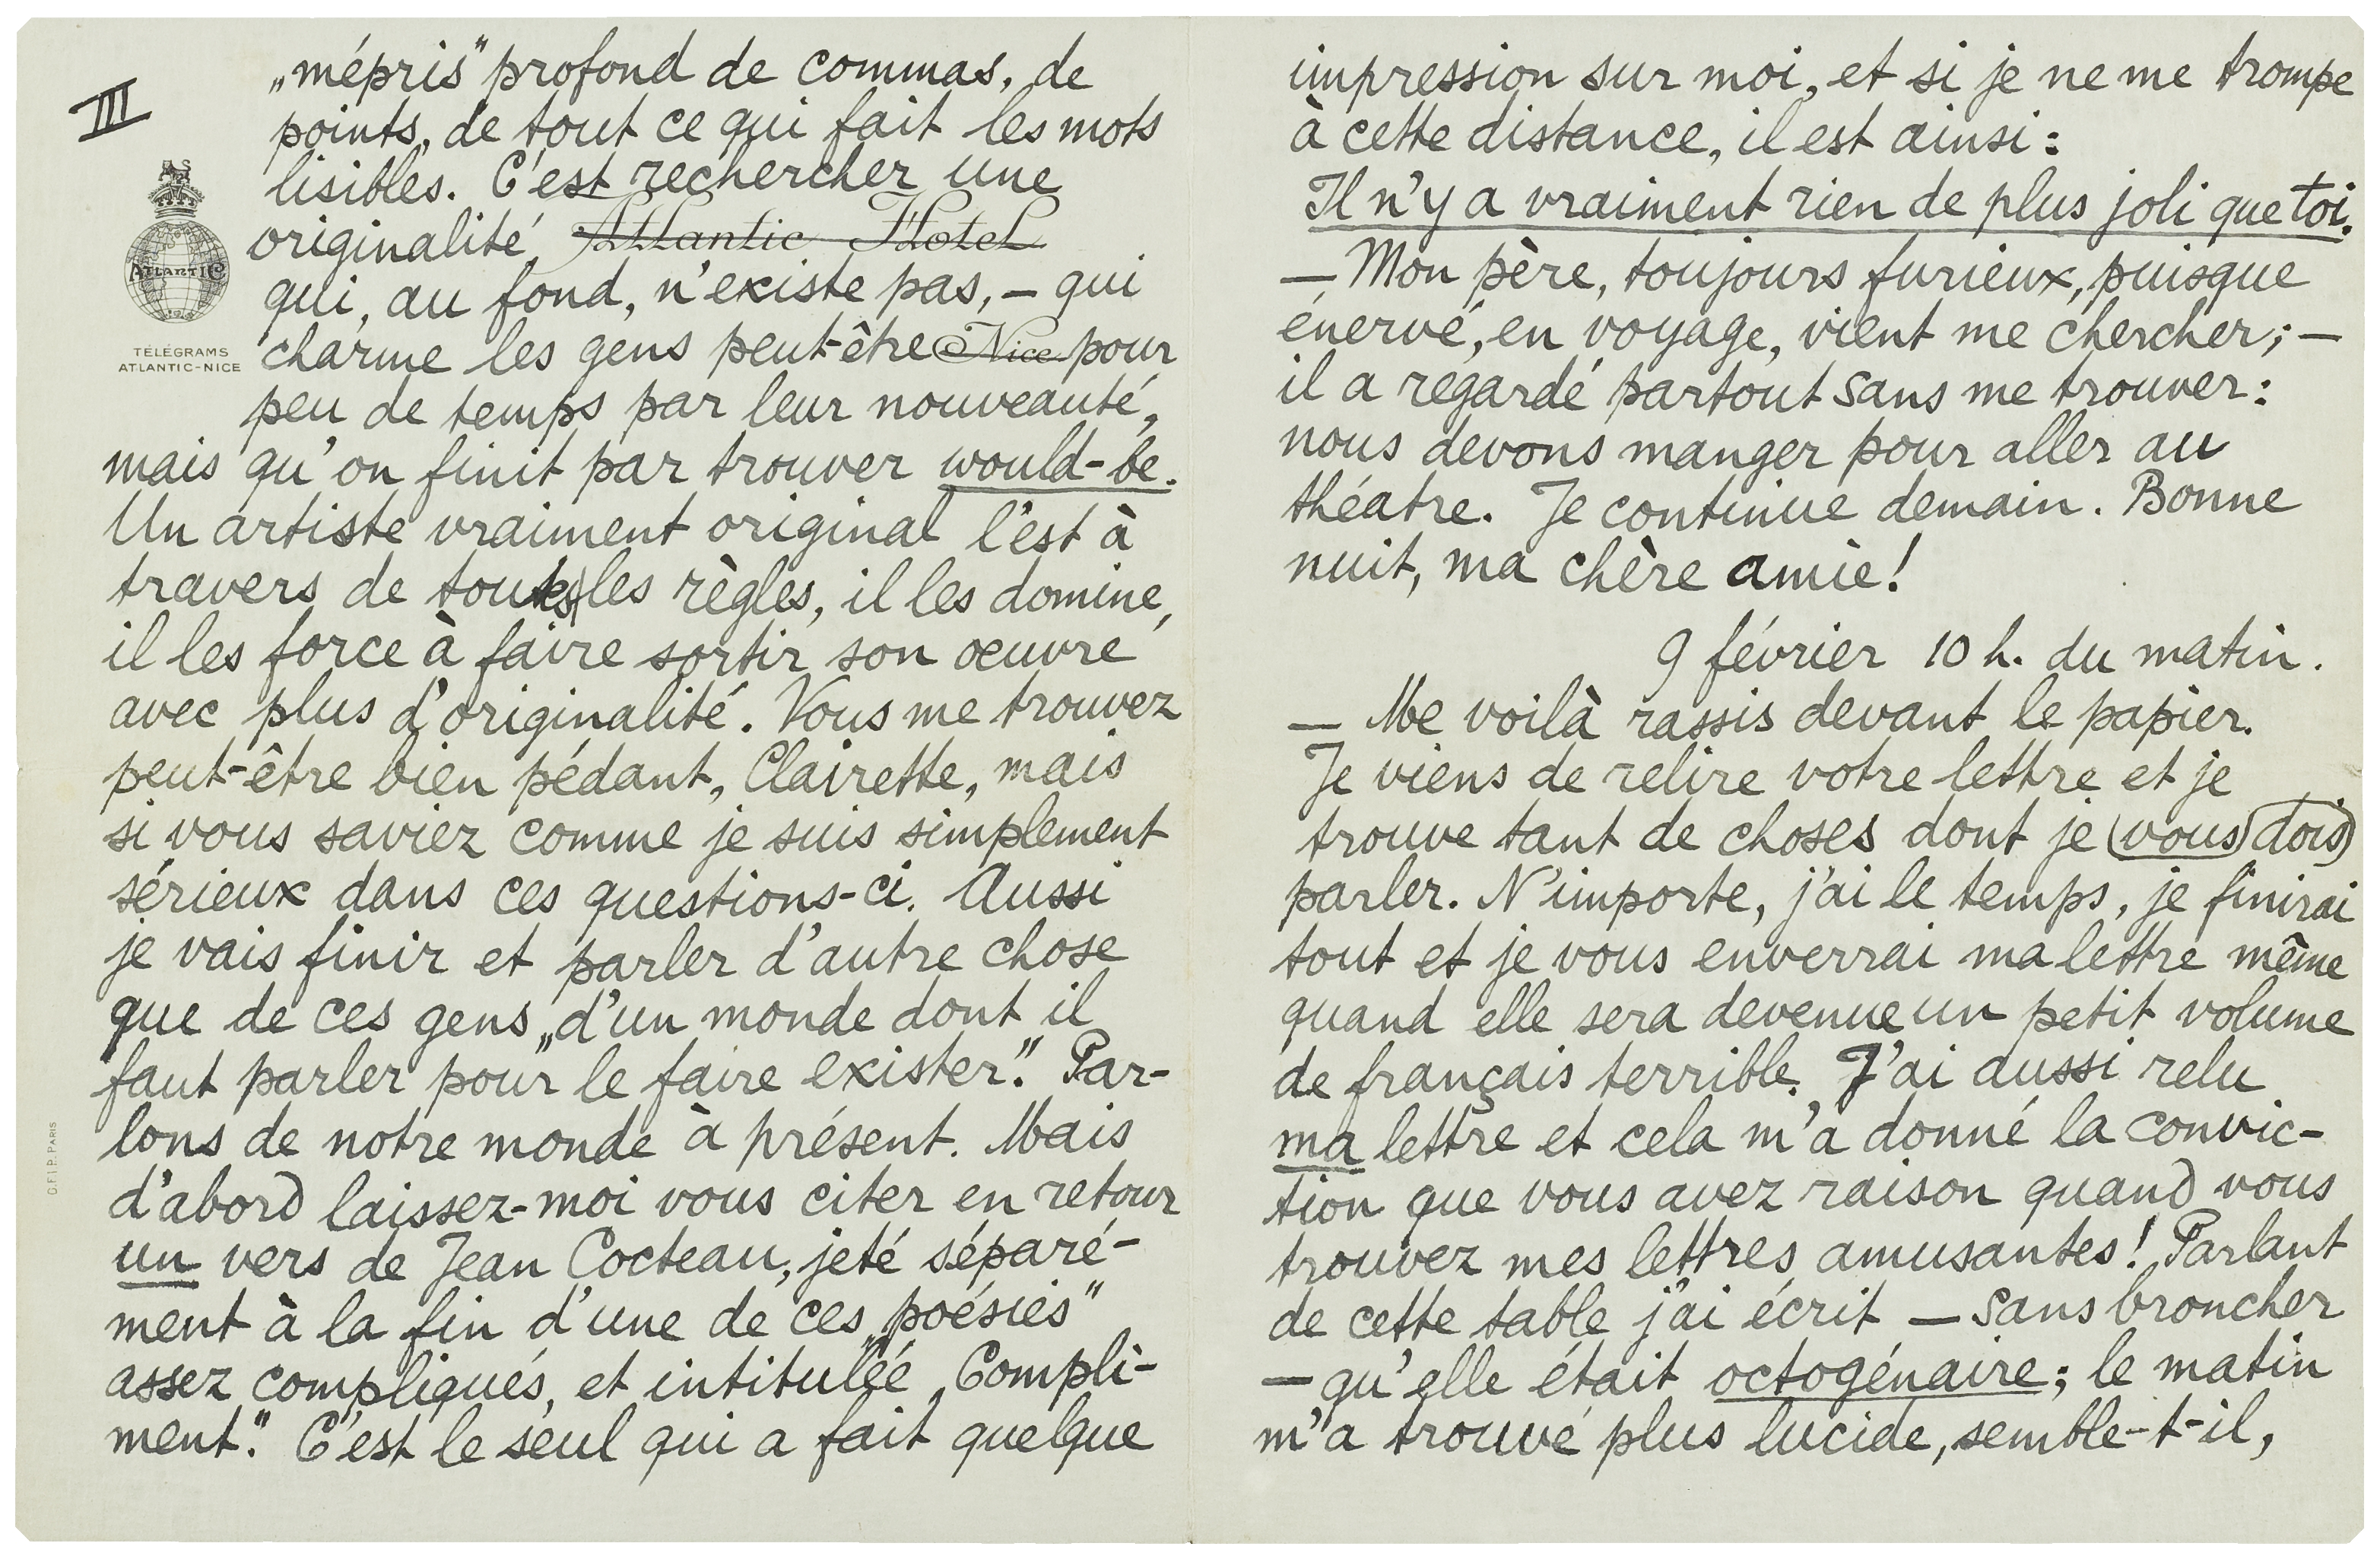 III
„mépris" profond de commas, de
points, de tout ce qui fait les mots
lisibles. C'est rechercher une
originalité, Atlantic Hotel
qui, au fond, n'existe pas, – qui
charme les gens peut-être Nice pour
peu de temps par leur nouveauté,
mais qu'on finit par trouver would-be.
Un artiste vraiment original l'est à
travers de toutes les règles, il les domine,
il les force à faire sortir son oeuvre
avec plus d'originalité. Vous me trouvez
peut-être bien pédant, Clairette, mais
si vous saviez comme je suis simplement
sérieux dans ces questions-ci. Aussi
je vais finir et parler d'autre chose
que de ces gens „d'un monde dont il
faut parler pour le faire exister." Par-
lons de notre monde à présent. Mais
d'abord laissez-moi vous citer en retour
un vers de Jean Cocteau, jeté séparé-
ment à la fin d'une de ces „poésies"
assez compliqués, et intitulée „Compli-
ment." C'est le seul qui a fait quelque
ATLANTIC
TÉLÉGRAMS
ATLANTIC-NICE
O.F.I.P. PARIS
impression sur moi, et si je ne me trompe
à cette distance, il est ainsi:
Il n'y a vraiment rien de plus joli que toi.
— Mon père, toujours furieux, puisque
énervé, en voyage, vient me chercher; —
il a regardé partout sans me trouver:
nous devons manger pour aller au
théatre. Je continue demain. Bonne
nuit, ma chère amie!
9 février 10 h. du matin.
— Me voilà rassis devant le papier.
Je viens de relire votre lettre et je
trouve tant de choses dont je (vous) dois)
parler. N'importe, j'ai le temps, je finirai
tout et je vous enverrai ma lettre même
quand elle sera devenue un petit volume
de français terrible. J'ai aussi relu
ma lettre et cela m'a donné la convic-
tion que vous avez raison quand vous
trouvez mes lettres amusantes! Parlant
de cette table j'ai écrit — sans broncher
— qu'elle était octogénaire; le matin
m'a trouvé plus lucide, semble-t-il,